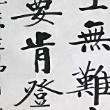 上無難
要肯登